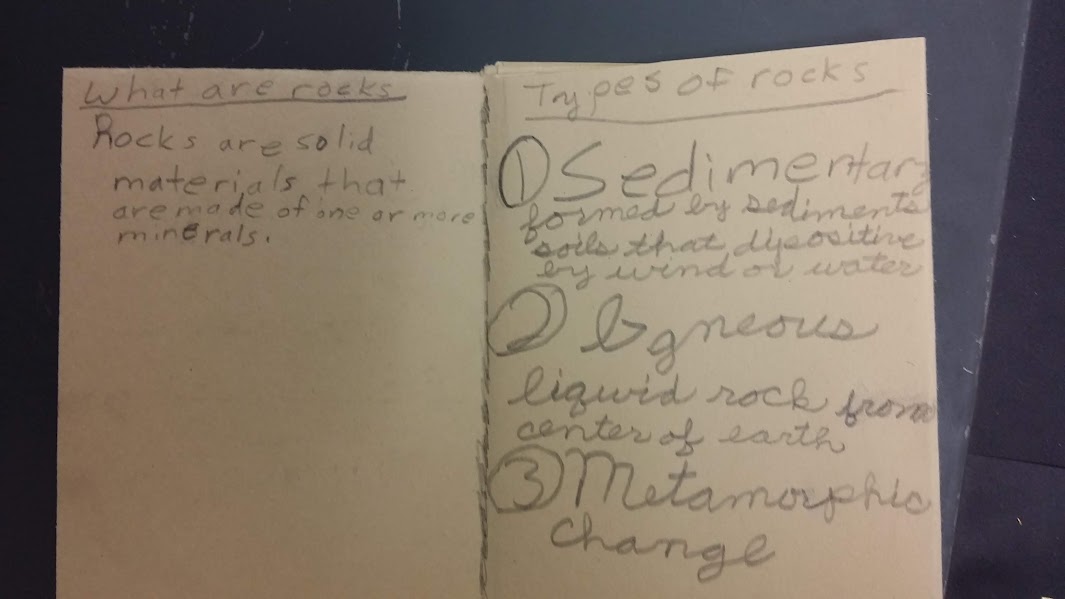 What are rocks
Rocks are solid
materials that
are made of one or more
minerals.
Types of rocks
1 Sedimentary
formed by sediments
soils that dipositive
by wind or water
2 Igneous
liquid rock from
center of earth
3 Metamorphic
change